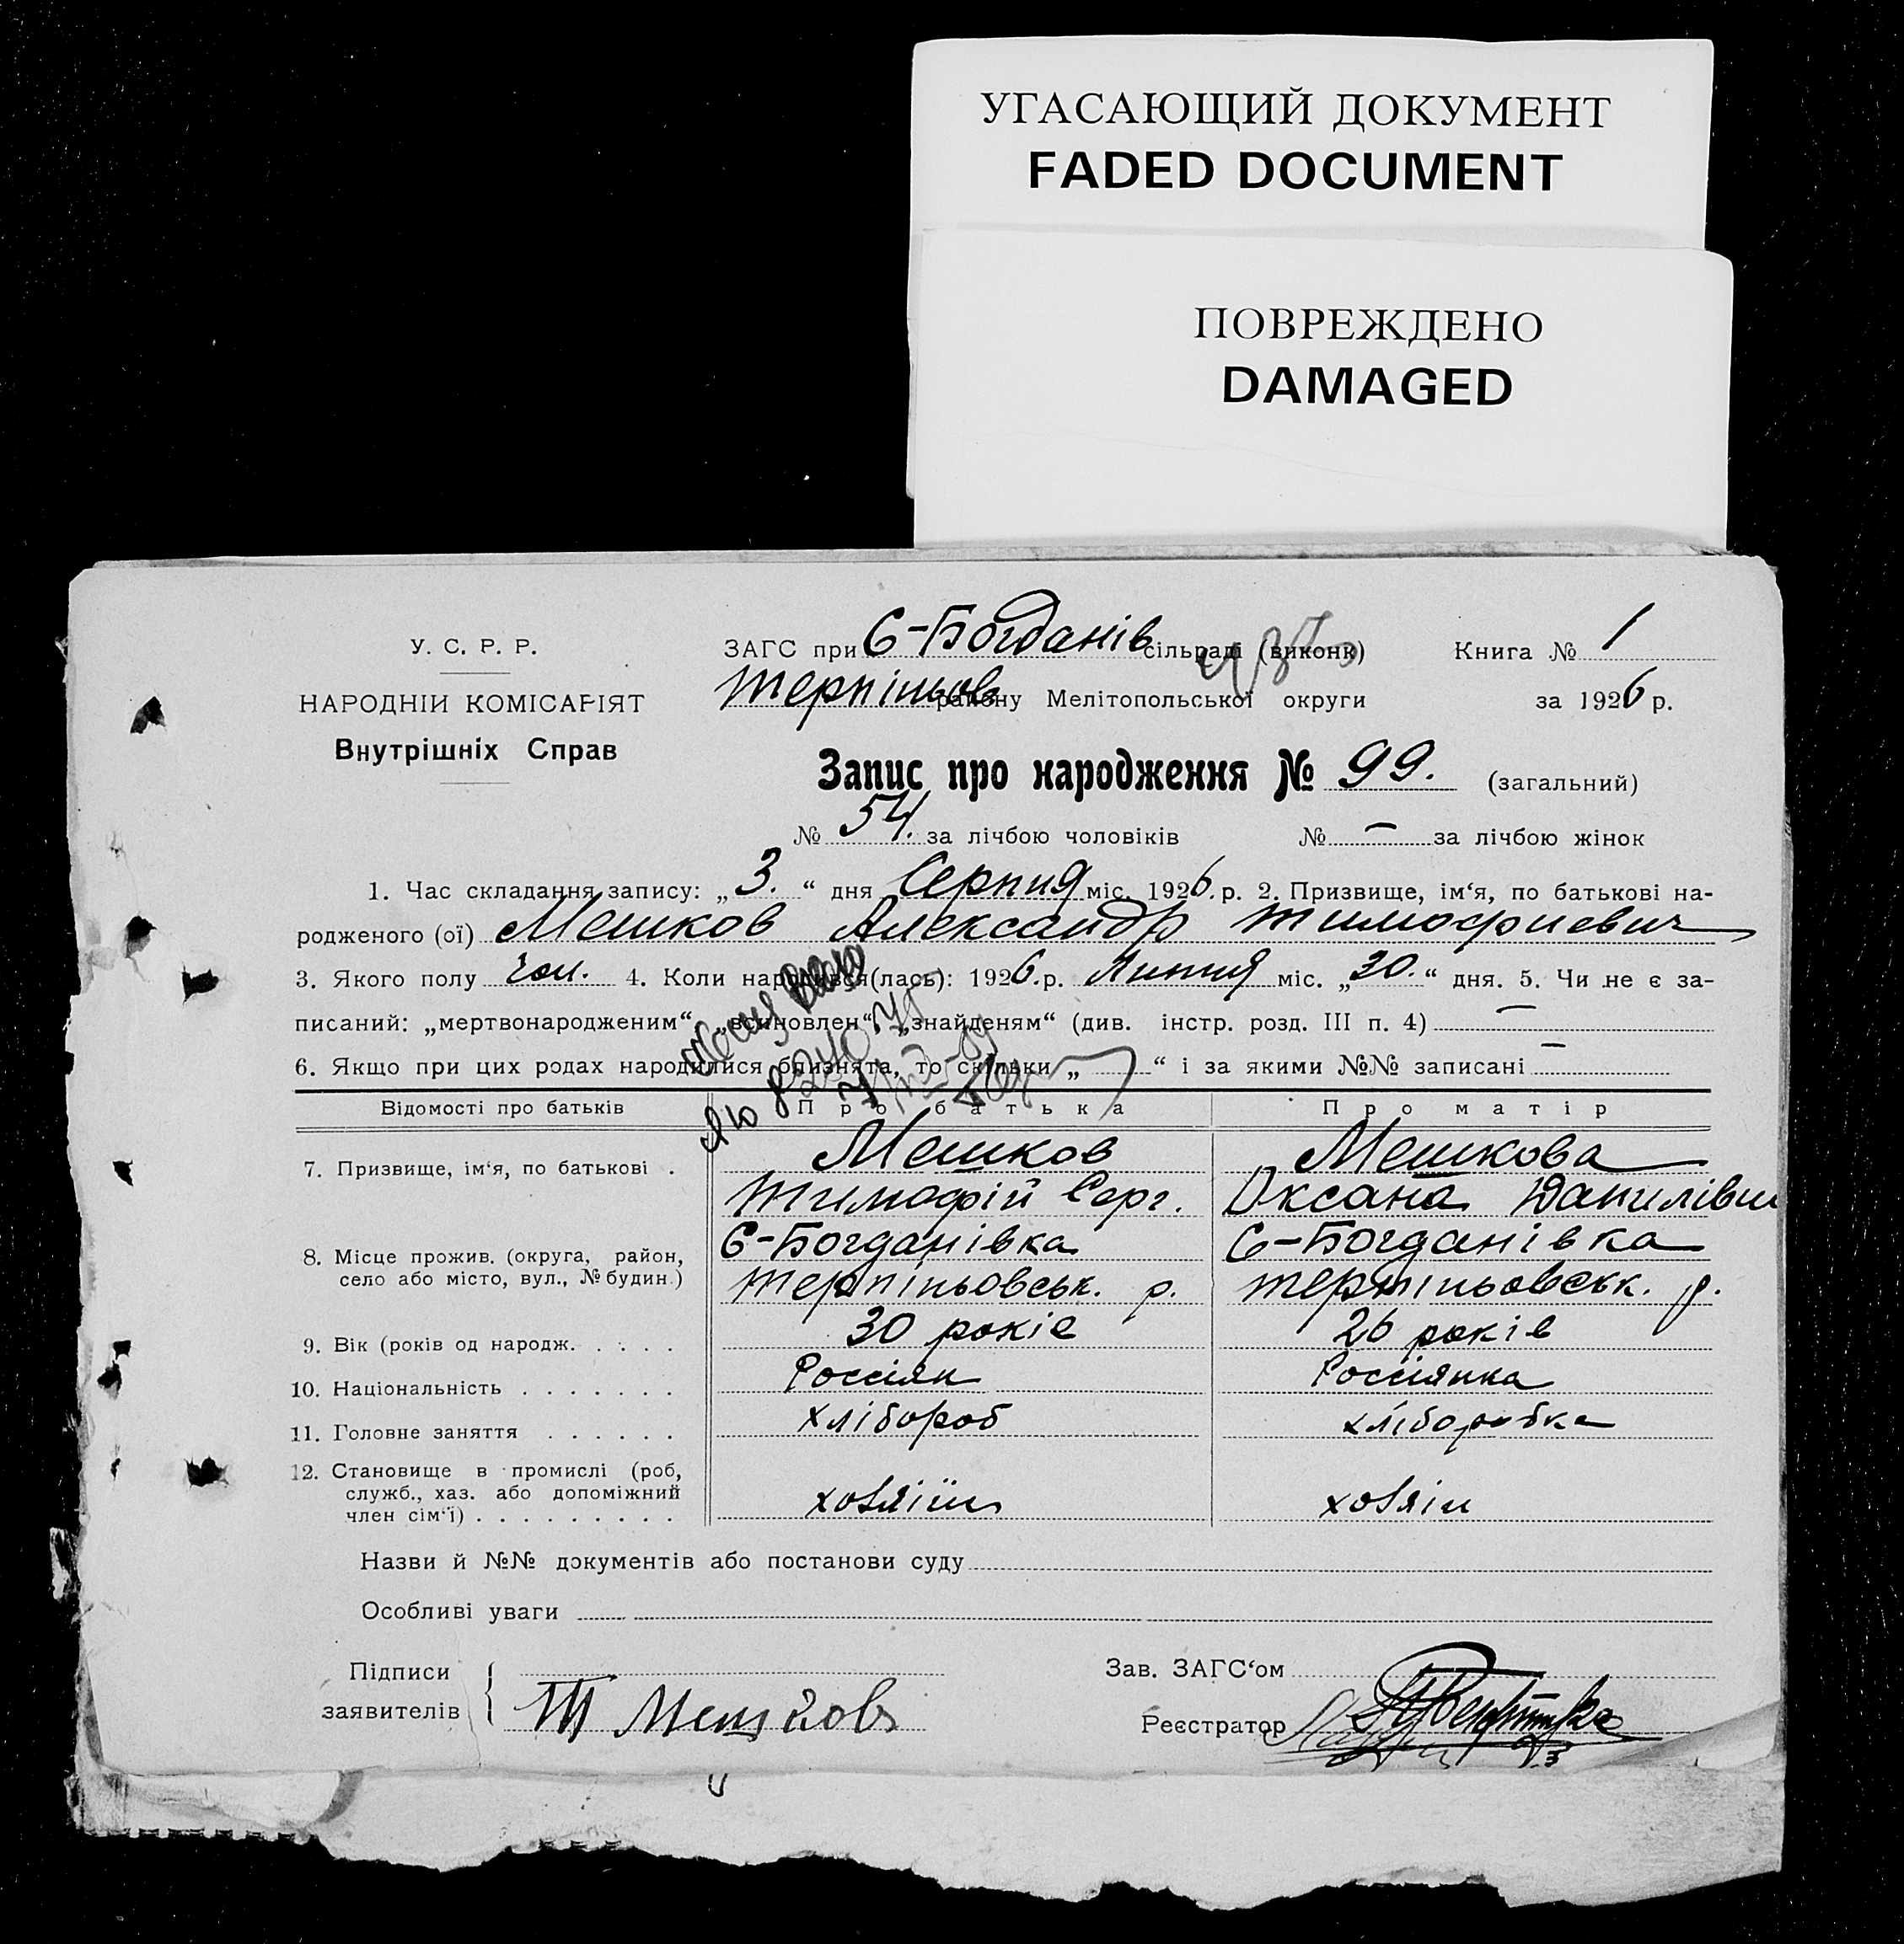 УГАСАЮЩИЙ ДОКУМЕНТ
FADED DOCUMENT
ПОВРЕЖДЕНО
DAMAGED
У. С. Р. Р.
НАРОДНІЙ КОМІСАРІЯТ
Внутрішніх Справ
ЗАГС при Є-Богданів сільраді (виконк) Книга № 1
Терпіньов району Мелітопольської округи за 1926 р.
Запис про народження № 99. (загальний)
№ 54. за лічбою чоловіків № — за лічбою жінок
1. Час складання запису: „3.“ дня Серпня міс. 1926 р. 2. Призвище, ім'я, по батькові на-
родженого (ої) Мешков Александр Тимофиевич
3. Якого полу чол. 4. Коли народився(лась): 1926 р. Липня міс. „30.“ дня. 5. Чи не є за-
писаний: „мертвонародженим“, „всиновлен“, „знайденям“ (див. інстр. розд. III п. 4) —
6. Якщо при цих родах народилися близнята, то скільки „ “ і за якими №№ записані —
Відомості про батьків Про батька Про матір
7. Призвище, ім'я, по батькові . Мешков Мешкова
Тимофій Серг. Оксана Данилівн
8. Місце прожив. (округа, район, село або місто, вул., № будин.) Є-Богданівка Є-Богданівка
Терпіньовськ. р. Терпіньовськ. р.
9. Вік (років од народж. . . . . 30 років 26 років
10. Національність . . . . . . . Россіян Россіянка
11. Головне заняття . . . . . . хлібороб хліборобка
12. Становище в промислі (роб,
служб., хаз. або допоміжний
член сім'ї) . . . . . . . . . хозяїін хозяін
Назви й №№ документів або постанови суду
Особливі уваги
Підписи Зав. ЗАГС'ом
заявителів Т Мешков Реєстратор